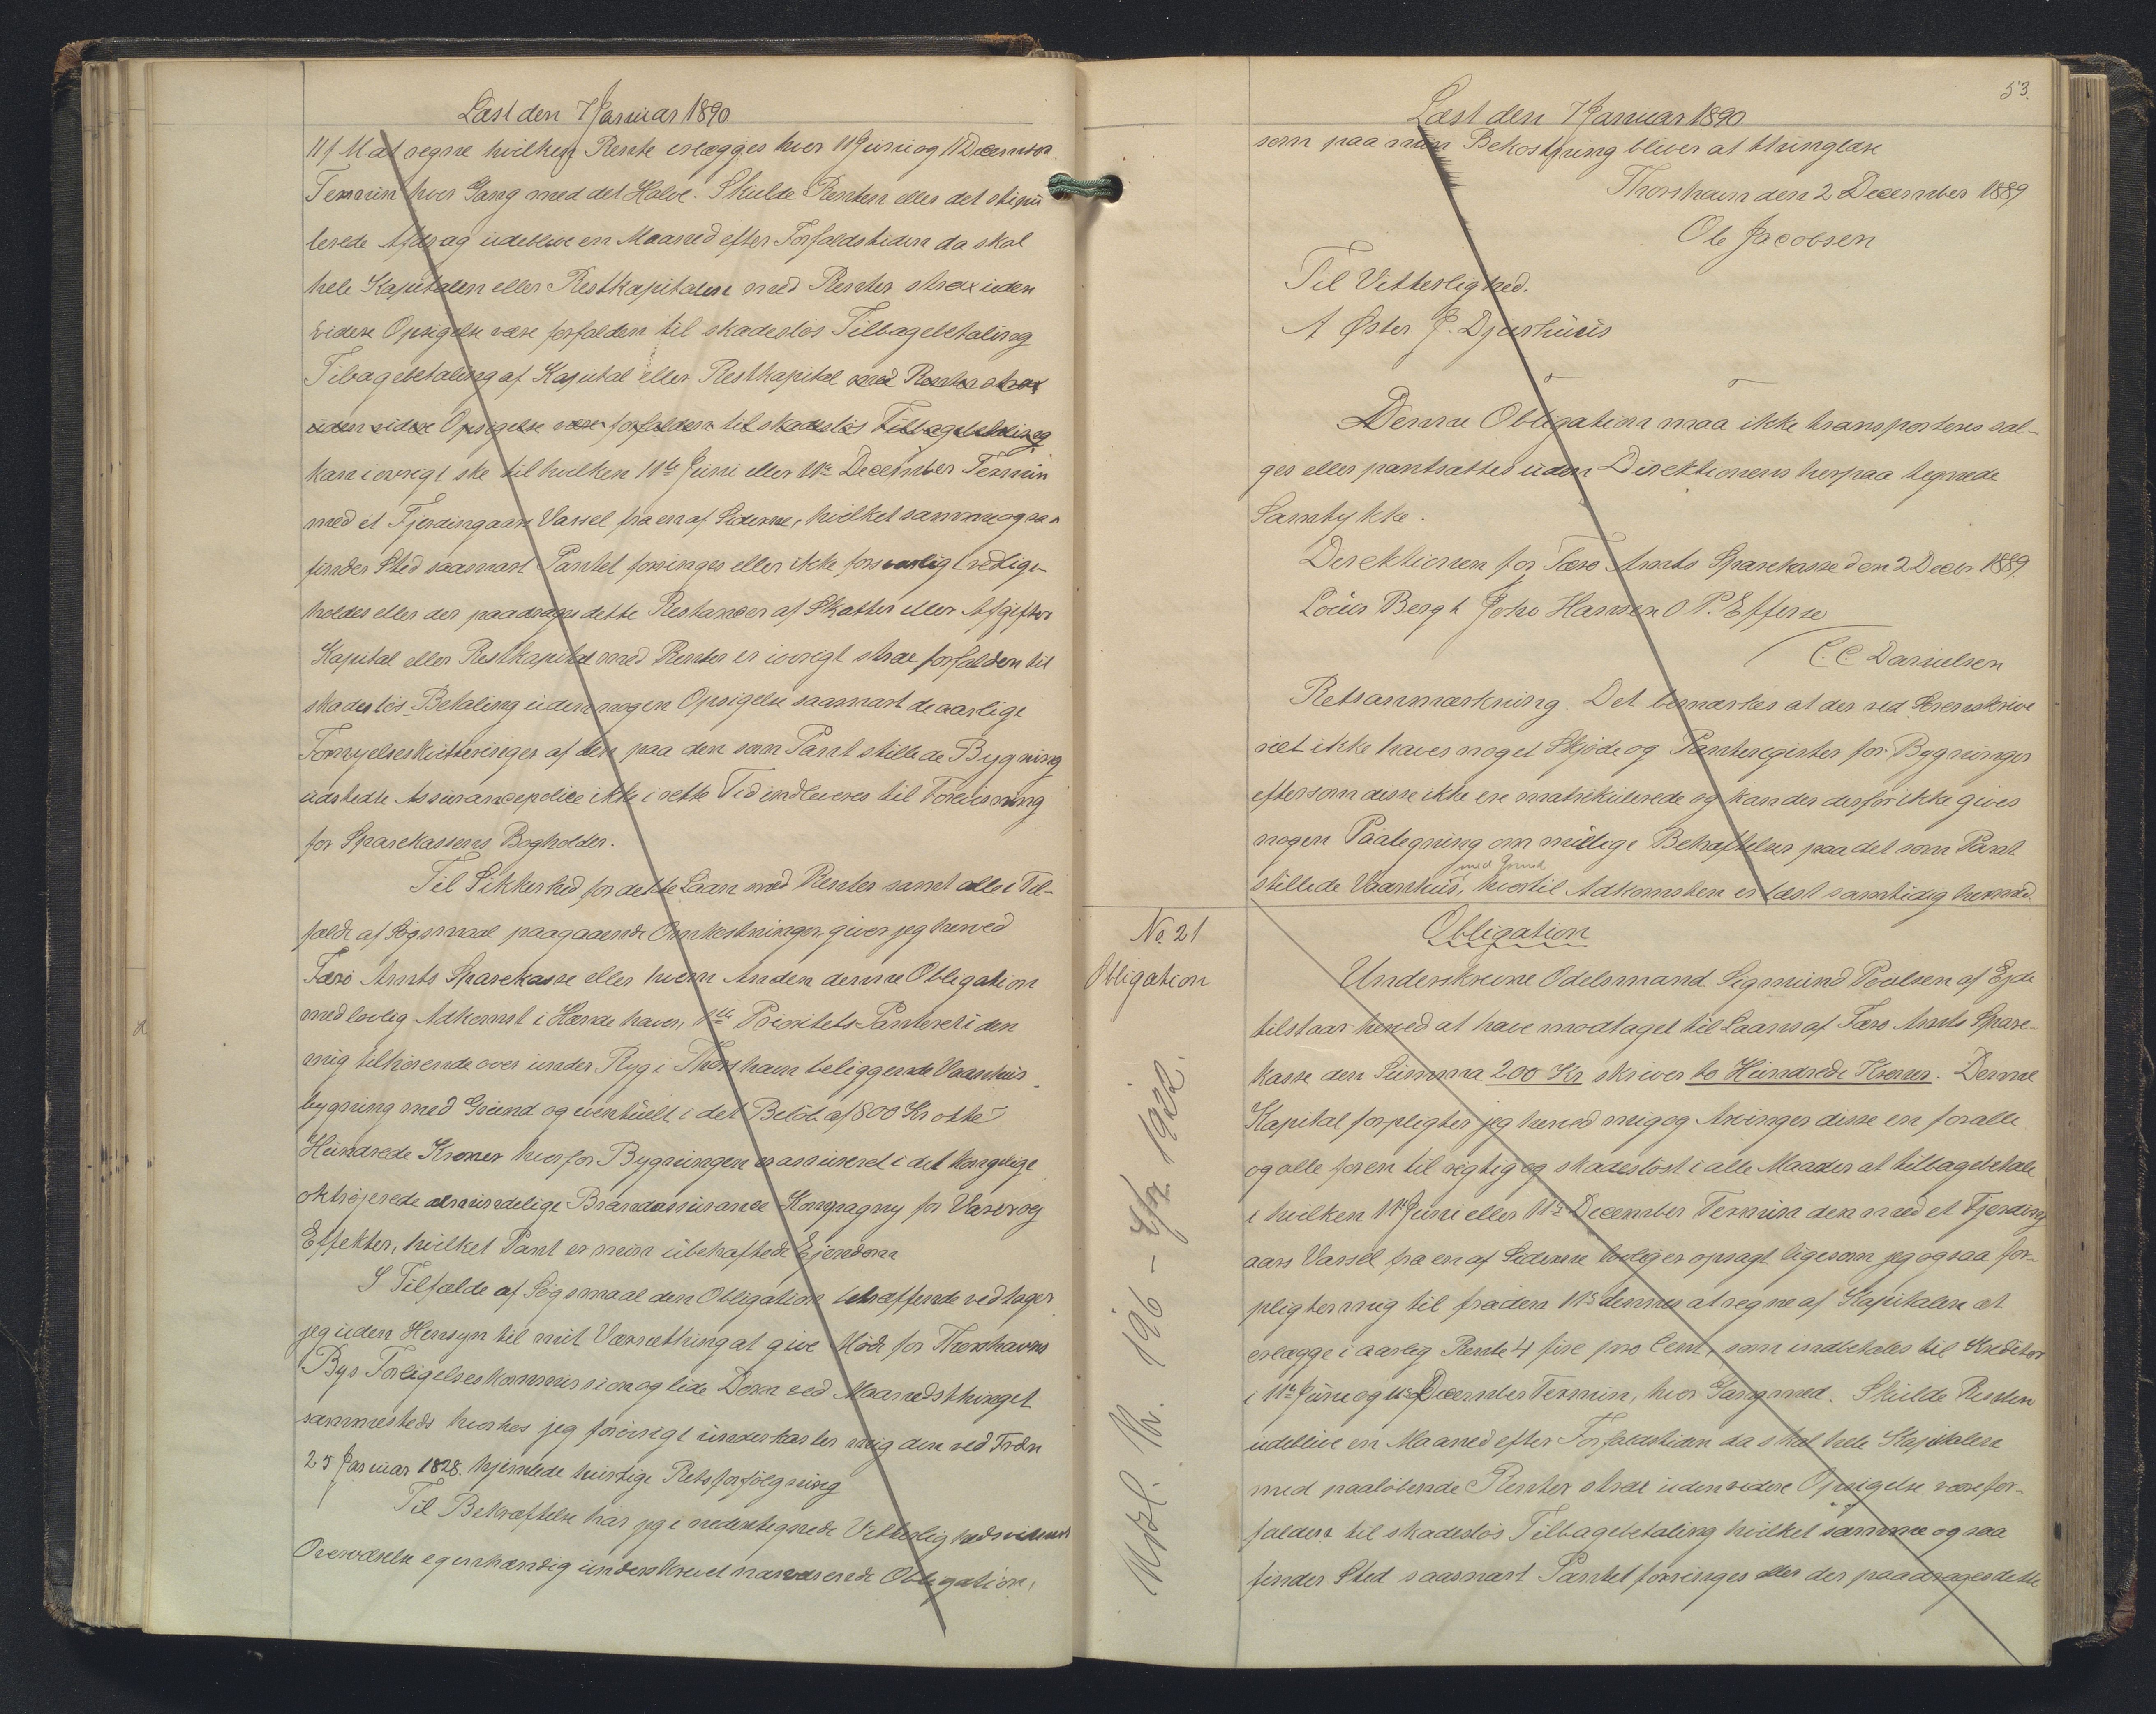 Læst den 7 Januar 1890
11/ M at regne hvilken Rente erlægges hver 11 Juni og 11 December
Termin hver Gang med det Halve. Skulde Renten eller det stipu
lerede Afdrag udeblive en Maaned efter Forfaldstiden da skal
hele Kapitalen eller Restkapitalen med Renter strax uden
videre Opsigelse være forfalden til skadeslös Tilbagebetaling
Tibagebetaling af Kapital eller Restkapital med Renter strax
uden videre Opsigelse være forfalden til skadeslös Tilbagebetaling
kan iövrigt ske til hvilken 11te Juni eller 11te December Termin
med et Fjerdingaars Varsel fra en af Siderne, hvilket samme ogsaa
finder Sted saasnart Pantet forringes eller ikke forsvarlig vedlige-
holdes eller der paadrages dette Restancer af Skatter eller Afgifter
Kapital eller Restkapital med Renter er iövrigt strax forfalden til
skadeslös Betaling uden nogen Opsigelse saasnart de aarlige
Fornyelseskvitteringer af den paa den som Pant stillede Bygning
udstedte Assurancepolice ikke i rette Tid indleveres til Forevisning
for Sparekassens Bogholder.
Til Sikkerhed for dette Laan med Renter samt alle i Til-
fælde af Sögsmaal paagaaende Omkostninger giver jeg herved
Færö Amts Sparekasse eller hvem Anden denne Obligation
med lovlig Adkomst i Hænde haver, 1ste Prioritets Panteret i den
mig tilhörende over under Ryg i Thorshavn beliggende Vaanhus
bygning med Grund og eventuelt i det Belöb af 800 Kr otte
Hundrede Kroner hvorfor Bygningen er assureret i det kongelige
oktrojerede almindelige Brandassurance Kompagny for Varer og
Effekter, hvilket Pant er min übehæftede Ejendom
I Tilfælde af Sögsmaal den Obligation betræffende vedtager
jeg uden Hensyn til mit Værnething at give Möde for Thorshavns
Bys Forligelseskommission og lide Dom ved Maanedsthinget
sammesteds hvorhos jeg forövrigt underkaster mig den ved Frdn
25 Januar 1828. hjemlede hurtige Retsforfölgning
Til Bekræftelse har jeg i nedentegnede Vitterlighedsvidners
Overværelse egenhændig underskrevet nærværende Obligation,
53.
Læst den 7 Januar 1890.
som paa min Bekostning bliver at thinglæse
Thorshavn den 2 December 1889
Ole Jacobsen
Til Vitterlighed.
A Öster J. Djurhuus
Denne Obligation maa ikke transporteres sæl-
ges eller pantsættes uden Direktionens herpaa tegnede
Samtykke.
Direktionen for Færö Amts Sparekasse den 2 Decbr 1889.
Louis Bergh Joho Hansen O P. Effersö
C. C. Danielsen
Retsanmærkning. Det bemærkes at der ved Sorenskrive
riet ikke haves noget Skjöde og Panteregister for Bygninger
eftersom disse ikke ere matrikulerede og kan der derfor ikke gives
nogen Paategning om mulige Behæftelser paa det som Pant
med Grund
stillede Vaanhus, hvortil Adkomsten er læst samtidig hermed.
No 21
Obligation
Obligation
Underskrevne Odelsmand Sigmund Poulsen af Ejde
tilstaar herved at have modtaget til Laans af Færö Amts Spare-
kasse den Summa 200 Kr skriver to Hundrede Kroner. Denne
Kapital forpligter jeg herved mig og Arvinger disse en for alle
og alle for en til rigtig og skadeslöst i alle Maader at tilbagebetale
i hvilken 11te Juni eller 11te December Termin den med et Fjerding
aars Varsel fra en af Siderne lovlig er opsagt ligesom jeg ogsaa for-
pligter mig til fra den 11te dennes at regne af Kapitalen at
erlægge i aarlig Rente 4 fire pro Cent, som indbetales til Kreditor
i 11te Juni og 11te December Termin, hver Gang med. Skulde Renten
udeblive en Maaned efter Forfaldstiden da skal hele Kapitalen
med paalöbende Renter strax uden videre Opsigelse være for-
falden til skadeslös Tilbagebetaling hvilket samme ogsaa
finder Sted saasnart Pantet forringes eller der paadrages dette
Udsl. Th. 19/6 - 1922.